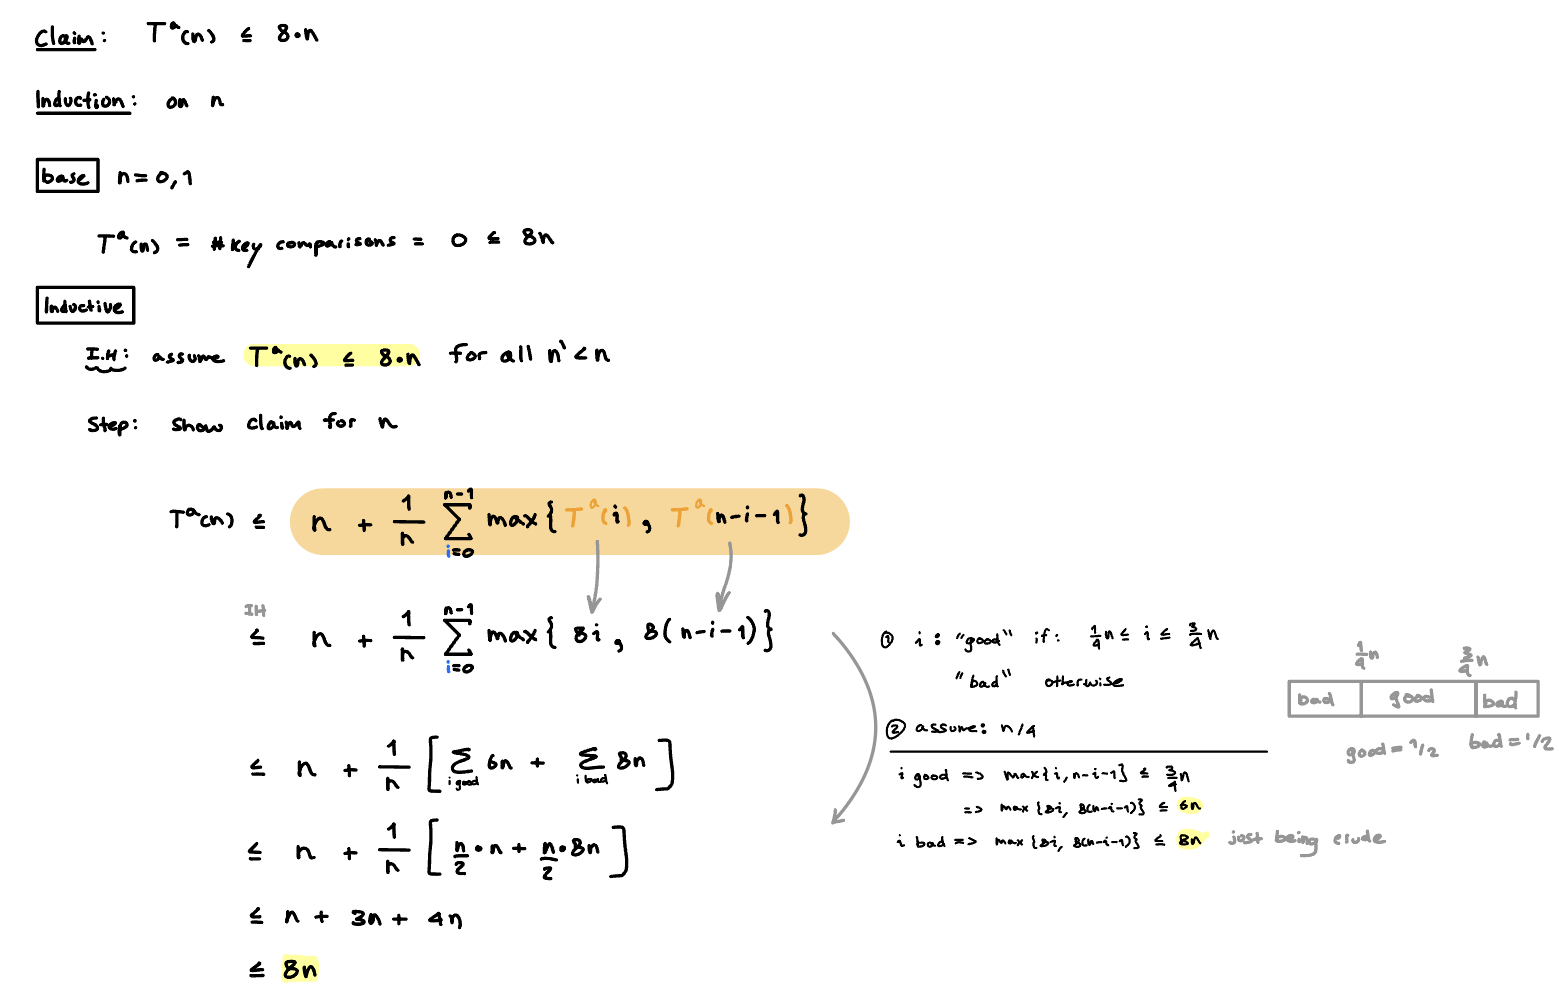 Claim: Tᵃ(n) ≤ 8·n
Induction: on n
base n=0,1
Tᵃ(n) = #key comparisons = 0 ≤ 8n
Inductive
I.H: assume Tᵃ(n) ≤ 8·n for all n' < n
Step: show claim for n
Tᵃ(n) ≤ n + 1/n ∑_{i=0}^{n-1} max{Tᵃ(i), Tᵃ(n-i-1)}
IH
≤ n + 1/n ∑_{i=0}^{n-1} max{8i, 8(n-i-1)}
≤ n + 1/n [∑_{i good} 6n + ∑_{i bad} 8n]
≤ n + 1/n [n/2 · n + n/2 · 8n]
≤ n + 3n + 4n
≤ 8n
① i: "good" if: 1/4 n ≤ i ≤ 3/4 n
"bad" otherwise
② assume: n/4
i good => max{i, n-i-1} ≤ 3/4 n
=> max{8i, 8(n-i-1)} ≤ 6n
i bad => max{8i, 8(n-i-1)} ≤ 8n just being crude
1/4 n 3/4 n
bad good bad
good = 1/2 bad = 1/2